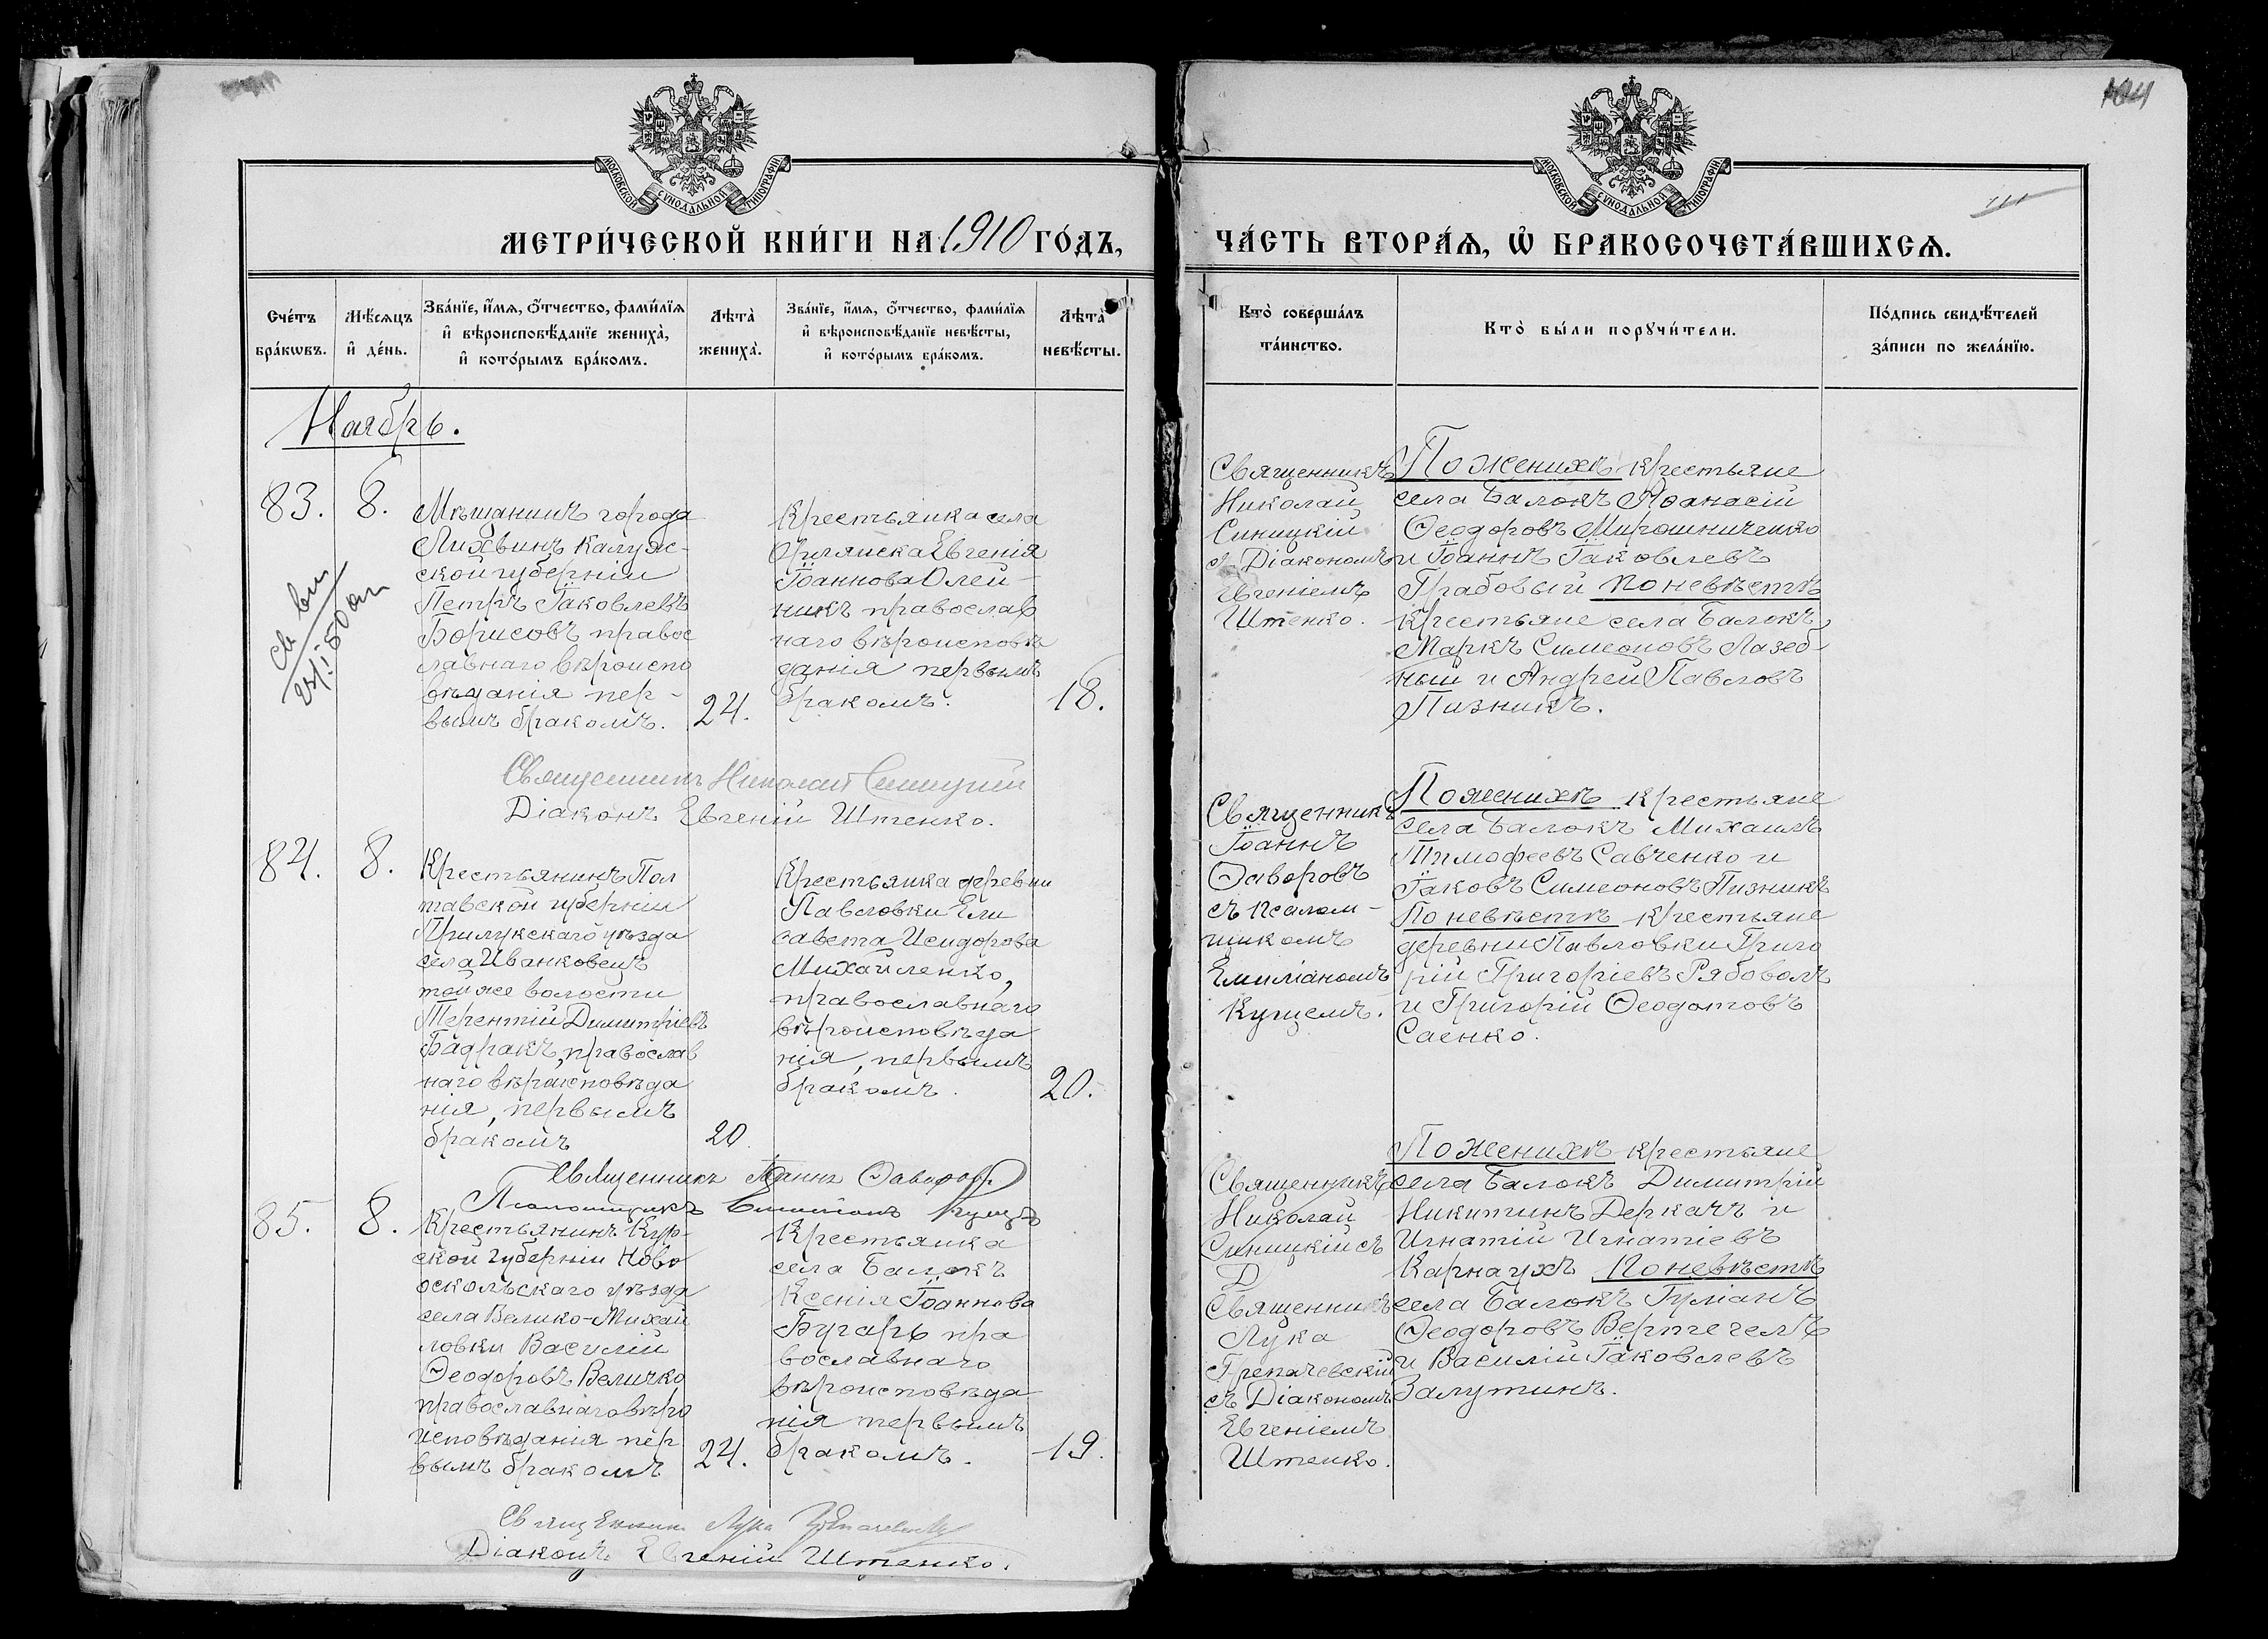 МОСКОВСКОЙ СѴНОДАЛЬНОЙ ТИПОГРАФІИ
МЕТРИ́ЧЕСКОЙ КНИ́ГИ НА 1910 ГО́ДЪ,
Сче́тъ бра́кѡвъ.
Мѣ́сяцъ и҆ де́нь.
Зва́нїе, и҆́мѧ, ѻ҆́тчество, фами́лїѧ
и҆ вѣроисповѣ́данїе жениха̀,
и҆ кото́рымъ бра́комъ.
Лѣта̀ жениха̀.
Зва́нїе, и҆́мѧ, ѻ҆́тчество, фами́лїѧ
и҆ вѣроисповѣ́данїе невѣ́сты,
и҆ кото́рымъ бра́комъ.
Лѣта̀ невѣ́сты.
Ноябрь.
83.
8.
Мѣщанинъ города
Лихвинъ Калуж-
ской губерніи
Петръ Іаковлевъ
Борисовъ правос
лавнаго вѣроиспо
вѣданія пер-
вымъ бракомъ.
24.
Крестьянка села
Іоаннова Олей-
никъ православ
наго вѣроисповѣ
данія первымъ
бракомъ.
18.
Священникъ Николай Синицкій
Діаконъ Евгеній Штенко.
84.
8.
Крестьянинъ Пол
тавской губерніи
Прилукскаго уѣзда
села Иванковецъ
той же волости
Терентій Димитріевъ
Бадракъ, православ
наго вѣроисповѣда
нія, первымъ
бракомъ
20.
Крестьянка деревни
Павловки Ели
савета Исидорова
Михайленко,
православнаго
вѣроисповѣда
нія, первымъ
бракомъ.
20.
Священникъ Іоаннъ Ѳаворовъ
Псаломщикъ Емиліанъ Кущъ
85.
8.
Крестьянинъ Кур-
ской губерніи Ново
оскольскаго уѣзда
села Велико-Михай
ловки Василій
Ѳеодоровъ Величко
православнаго вѣро
исповѣданія пер
вымъ бракомъ
24.
Крестьянка
села Балокъ
Ксенія Іоаннова
Бугарь пра
вославнаго
вѣроисповѣда
нія первымъ
бракомъ.
19.
Священникъ Лука
Діаконъ Евгеній Штенко.
МОСКОВСКОЙ СѴНОДАЛЬНОЙ ТИПОГРАФІИ
ЧА́СТЬ ВТОРА́Ѧ, Ѡ҆ БРАКОСОЧЕТА́ВШИХСѦ.
Кто̀ соверша́лъ
та́инство.
Кто̀ бы́ли порꙋчи́тели.
По́дпись свидѣ́телей
за́писи по жела́нїю.
Священникъ
Николай
Синицкій
съ Діакономъ
Евгеніемъ
Штенко.
По женихѣ крестьяне
села Балокъ Аѳанасій
Ѳеодоровъ Мирошниченко
и Іоаннъ Іаковлевъ
Грабовый по невѣстѣ
крестьяне села Балокъ,
Маркъ Симеоновъ Лазеб-
ный и Андрей Павловъ
Пизникъ.
Священникъ
Іоаннъ
Ѳаворовъ
съ псалом-
щикомъ
Емиліаномъ
Кущемъ.
По женихѣ крестьяне
села Балокъ Михаилъ
Тимофеевъ Савченко и
Іаковъ Симеоновъ Пизникъ
По невѣстѣ крестьяне
деревни Павловки Григо
рій Григоріевъ Рябоволъ
и Григорій Ѳеодотовъ
Саенко.
Священникъ
Николай
Синицкій съ
Д
Священникъ
Лука
съ Діакономъ
Евгеніемъ
Штенко.
По женихѣ крестьяне
села Балокъ Димитрій
Никитинъ Деркачъ и
Игнатій Игнатіевъ
Карнаухъ По невѣстѣ
села Балокъ Іуліанъ
Ѳеодоровъ Вертегелъ
и Василій Іаковлевъ
Залутинъ.